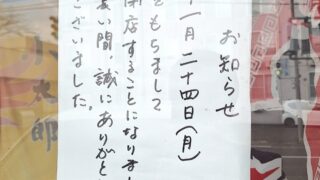 お知らせ
十一月二十四日(月)
をもちまして
閉店することになりまし
長い間、誠にありがと
ございました。
太郎